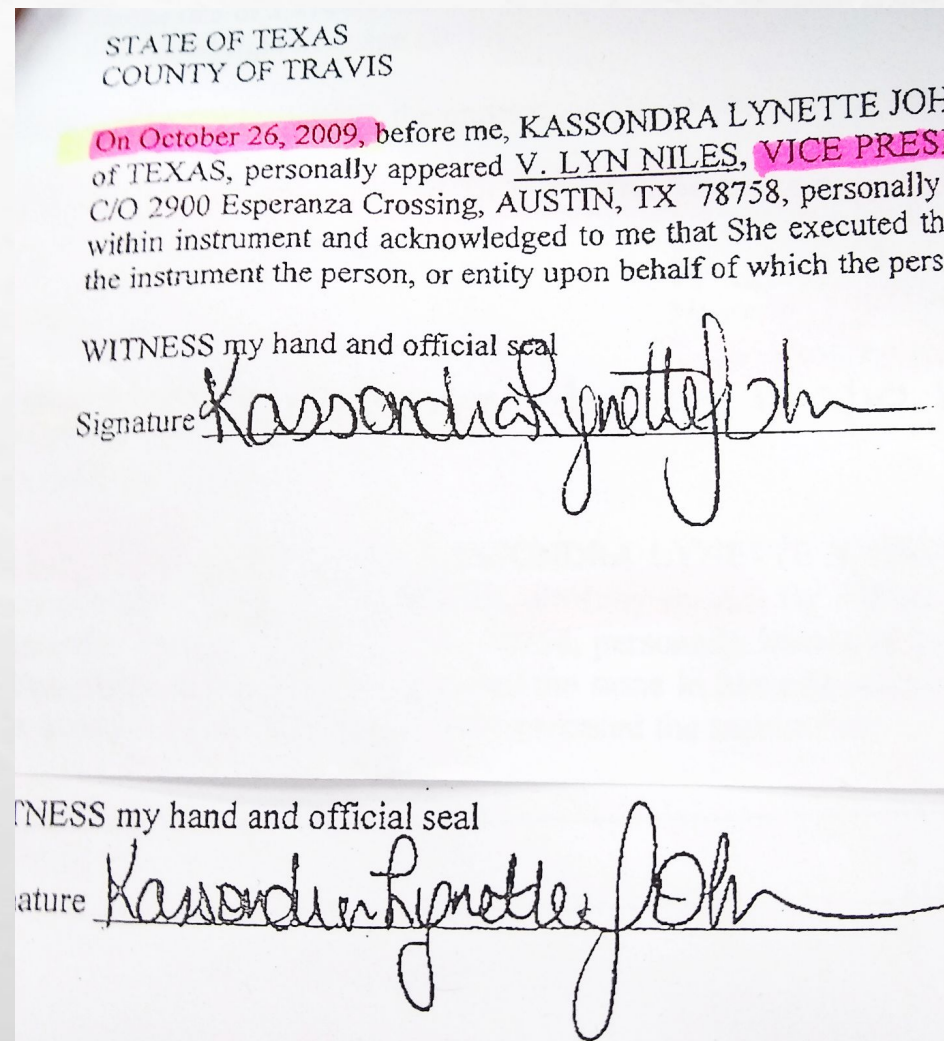 STATE OF TEXAS
COUNTY OF TRAVIS
On October 26, 2009, before me, KASSONDRA LYNETTE JOH
of TEXAS, personally appeared V. LYN NILES, VICE PRES
C/O 2900 Esperanza Crossing, AUSTIN, TX 78758, personally
within instrument and acknowledged to me that She executed th
the instrument the person, or entity upon behalf of which the pers
WITNESS my hand and official seal
Signature Kassondra Lynette Joh
TNESS my hand and official seal
ature Kassondra Lynette Joh